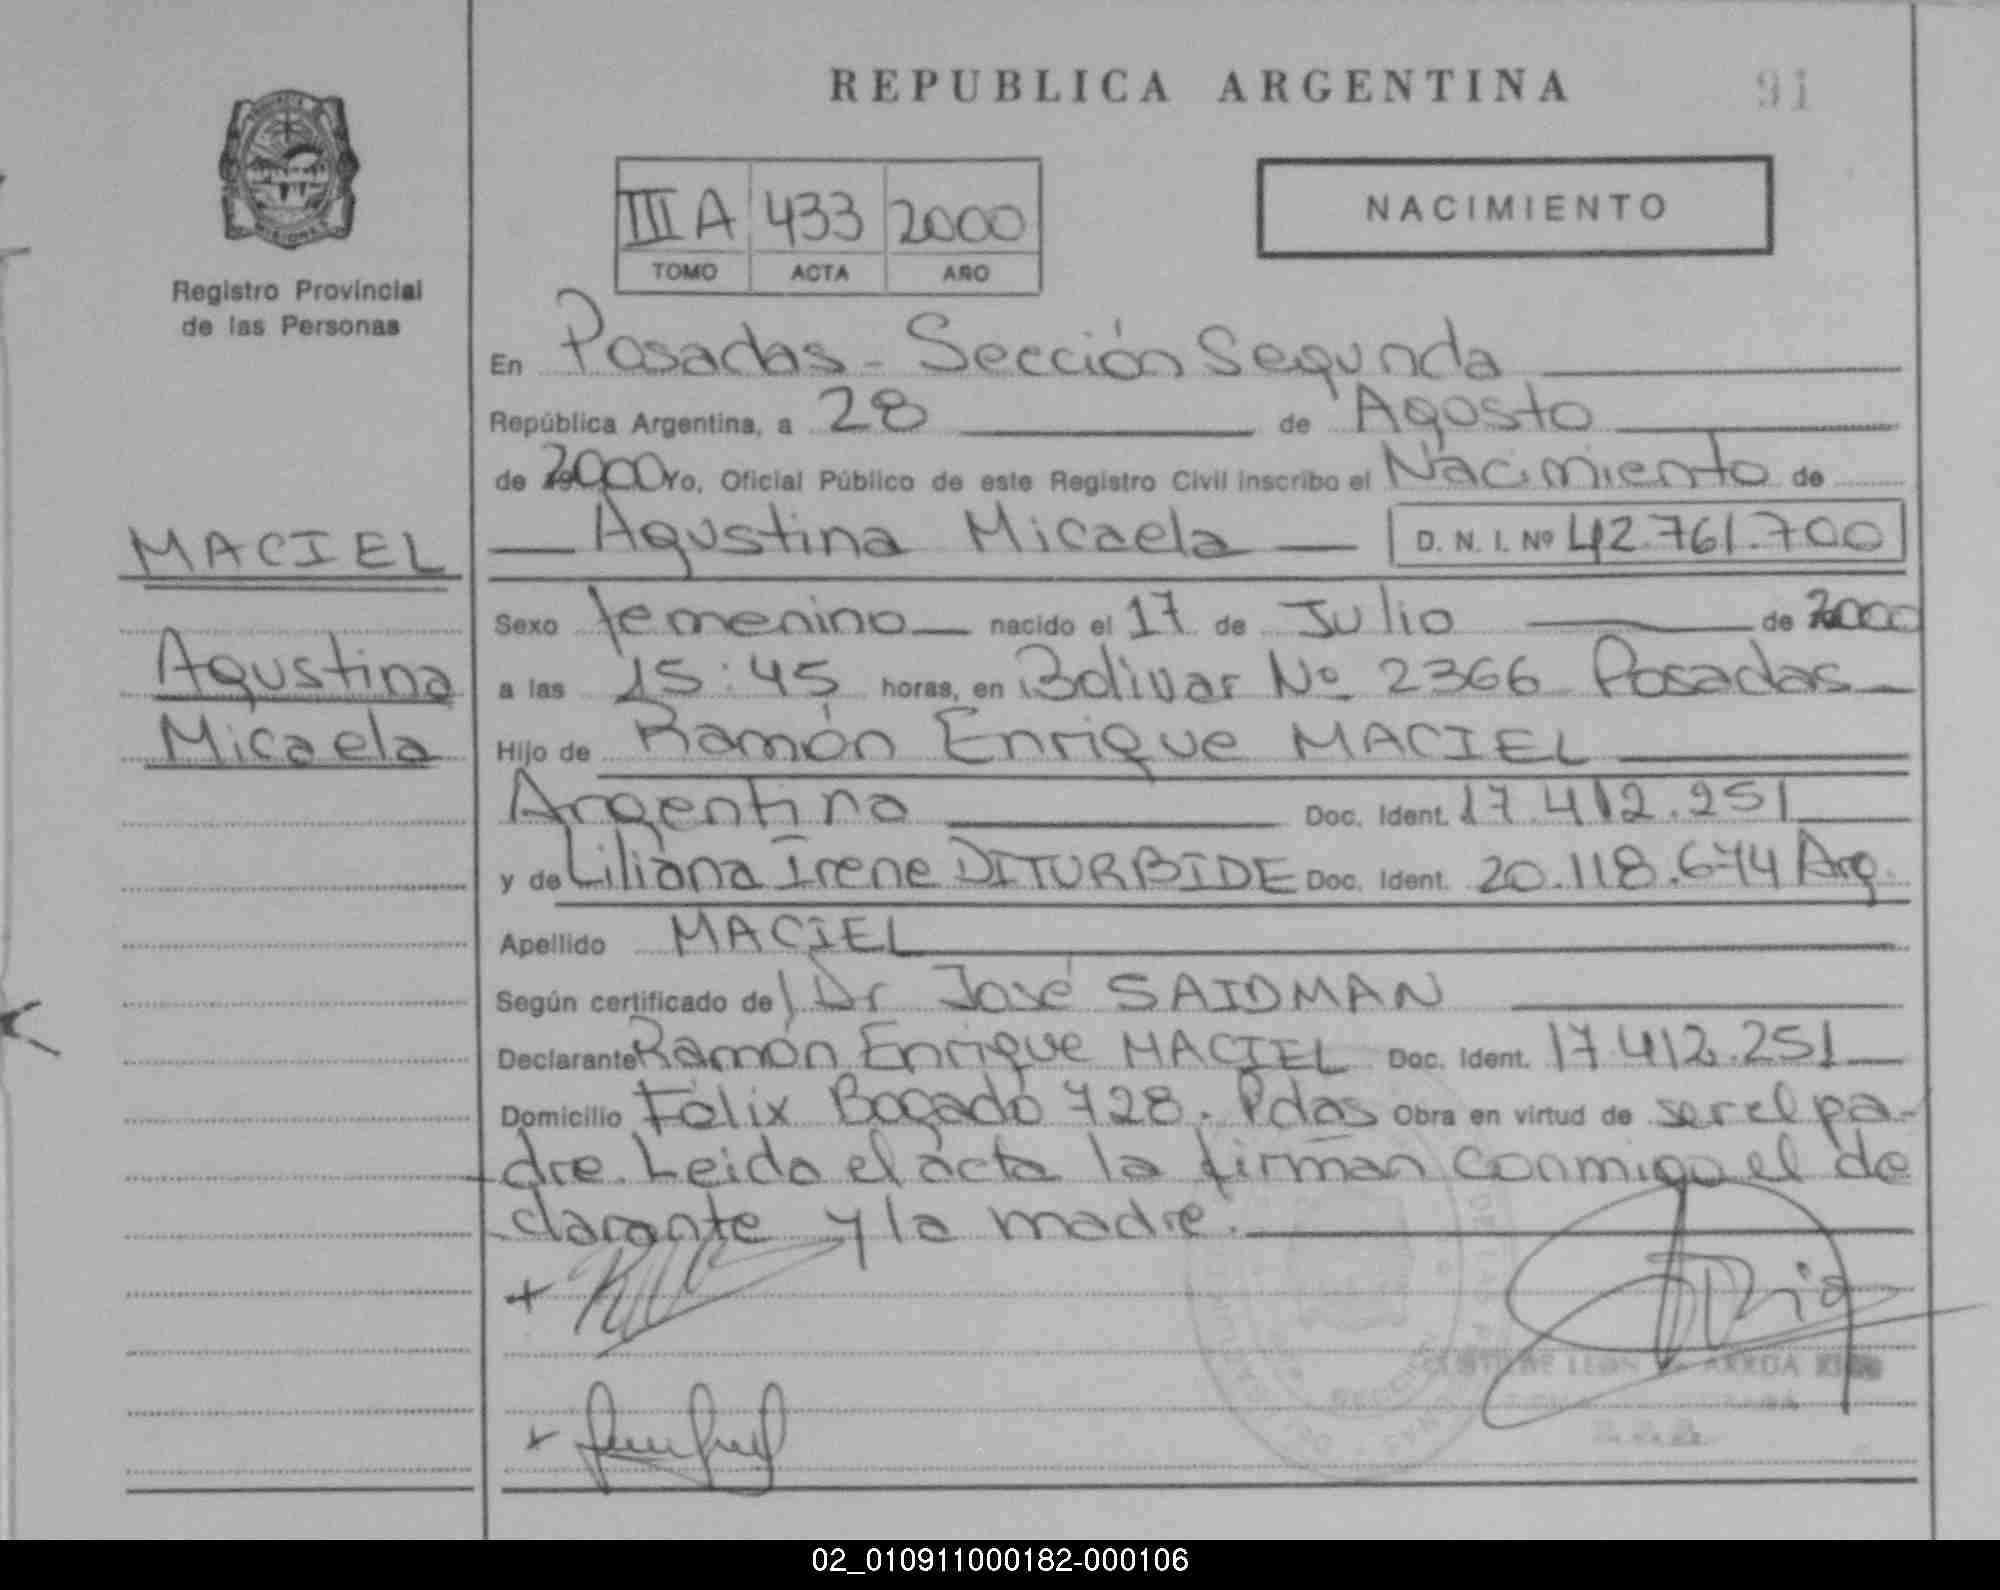 REPUBLICA ARGENTINA
91
MISIONES
Registro Provincial
de las Personas
III A 433 2000
TOMO ACTA AÑO
NACIMIENTO
En Posadas - Sección Segunda
República Argentina, a 28 de Agosto
de 2000 Yo, Oficial Público de este Registro Civil inscribo el Nacimiento de
MACIEL
Agustina Micaela D. N. I. Nº 42.761.700
Sexo femenino nacido el 17 de Julio de 2000
Agustina
a las 15:45 horas, en Bolivar Nº 2366 Posadas
Micaela
Hijo de Ramón Enrique MACIEL
Argentino Doc. Ident. 17.412.251
y de Liliana Irene DITURBIDE Doc. Ident. 20.118.674 Arg.
Apellido MACIEL
Según certificado de Dr José SAIDMAN
Declarante Ramón Enrique MACIEL Doc. Ident. 17.412.251
Domicilio Félix Bogado 728. Pdas Obra en virtud de ser el pa-
dre. Leida el acta la firman conmigo el de
clarante y la madre.
02_010911000182-000106